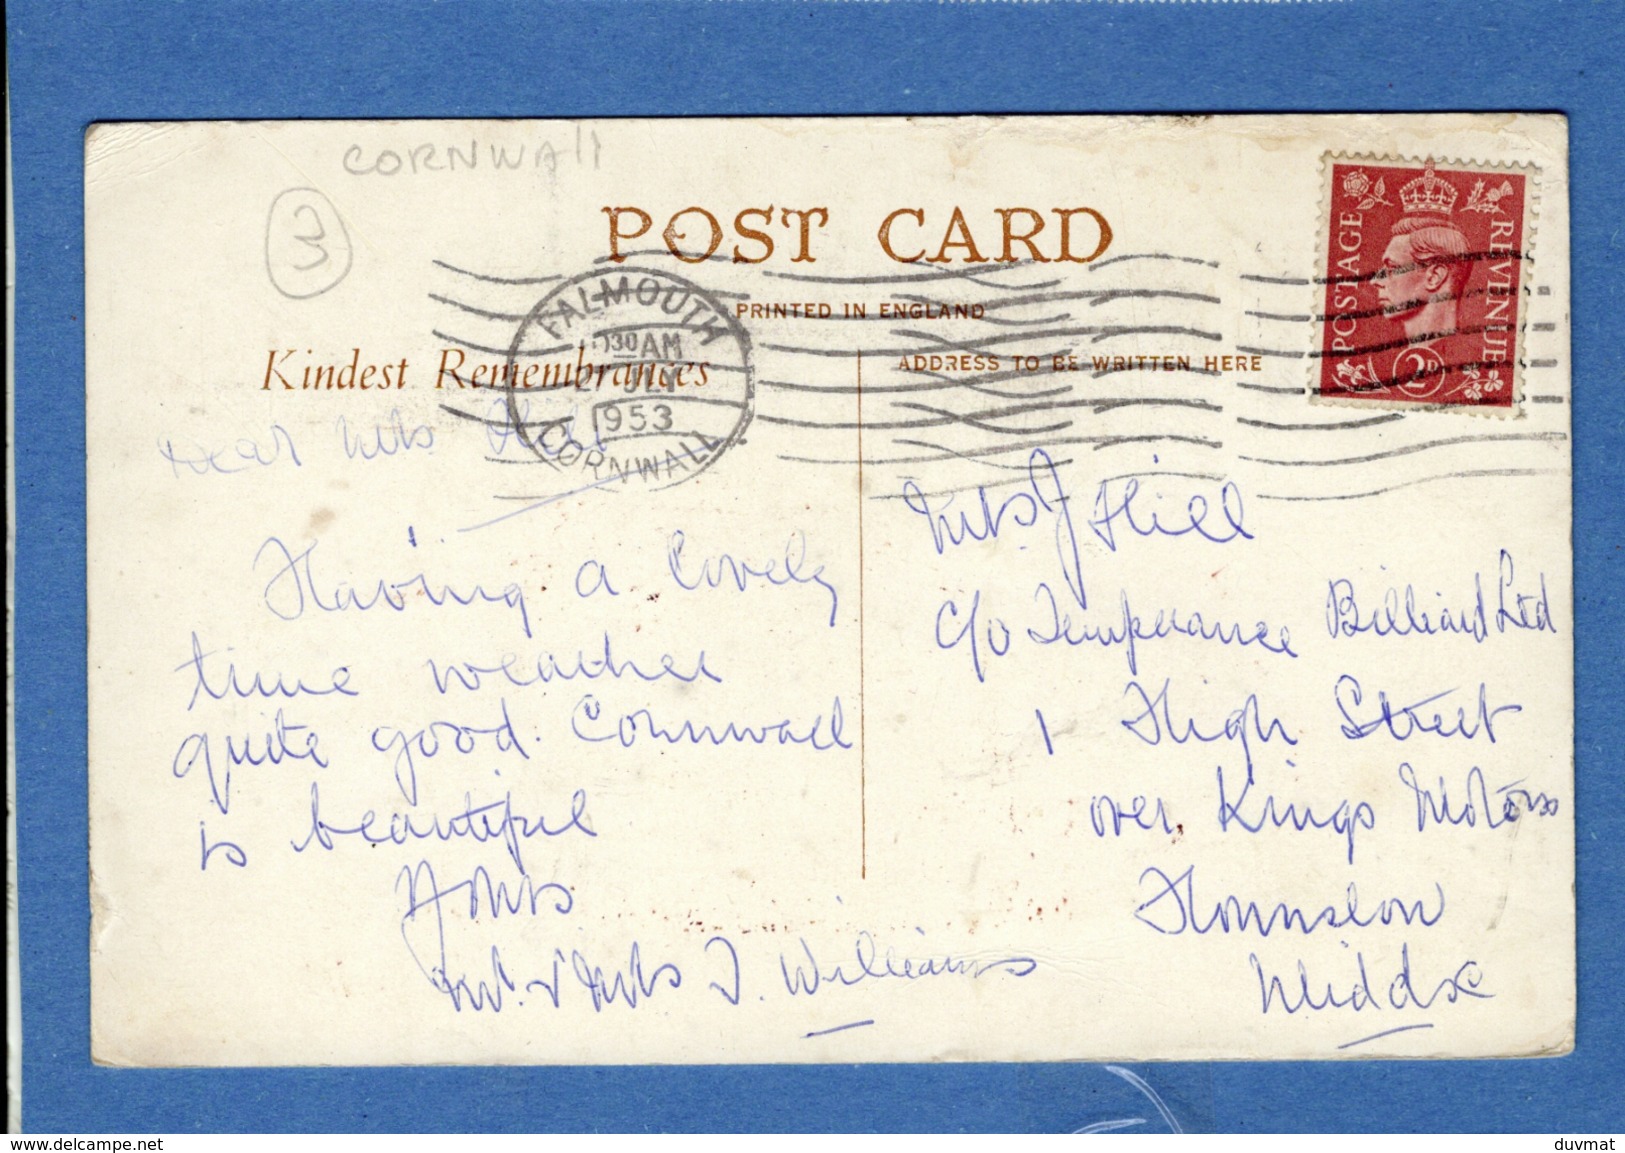 CORNWAll
3
POST CARD
PRINTED IN ENGLAND
Kindest Remembrances
ADDRESS TO BE WRITTEN HERE
FALMOUTH
30 AM
1953
CORNWALL
POSTAGE
REVENUE
2D
Dear Mrs Hill
Having a lovely
time weather
quite good. Cornwall
is beautiful
Yours
Mr. & Mrs J. Williams
Mrs. J Hill
C/o Temperance Billiard Ltd
1 High Street
over Kings Motors
Hounslow
Middx
www.delcampe.net
duvmat